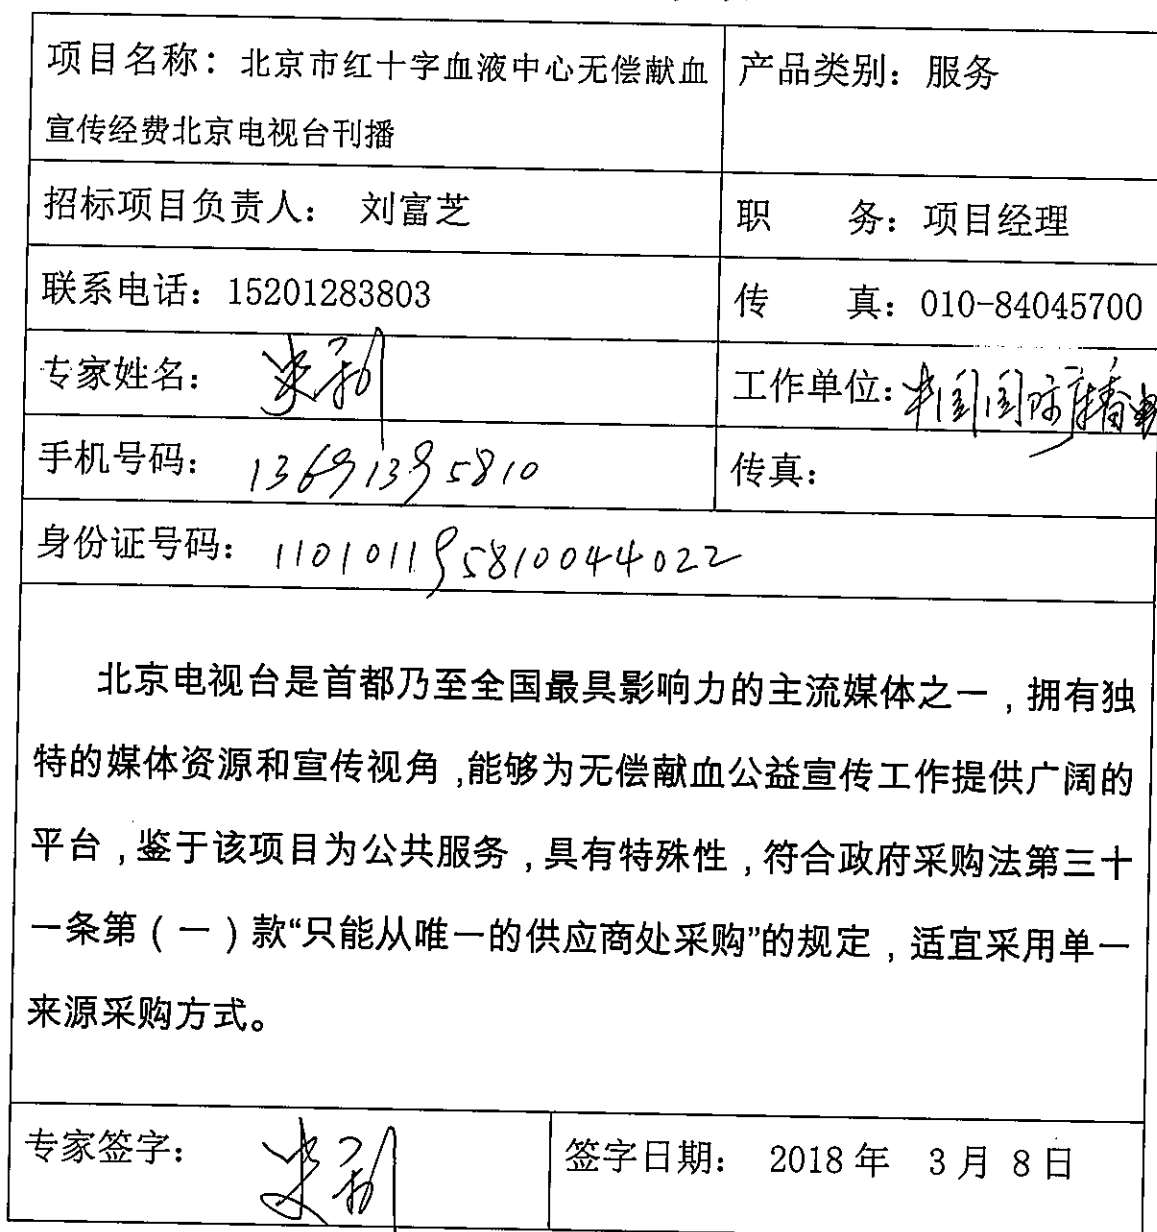 项目名称：北京市红十字血液中心无偿献血
宣传经费北京电视台刊播
产品类别：服务
招标项目负责人： 刘富芝
职 务：项目经理
联系电话：15201283803
传 真：010-84045700
专家姓名：
工作单位：中国国际广播
手机号码：13691395810
传真：
身份证号码：110101195810044022
北京电视台是首都乃至全国最具影响力的主流媒体之一，拥有独
特的媒体资源和宣传视角，能够为无偿献血公益宣传工作提供广阔的
平台，鉴于该项目为公共服务，具有特殊性，符合政府采购法第三十
一条第（一）款“只能从唯一的供应商处采购”的规定，适宜采用单一
来源采购方式。
专家签字：
签字日期： 2018 年 3 月 8 日